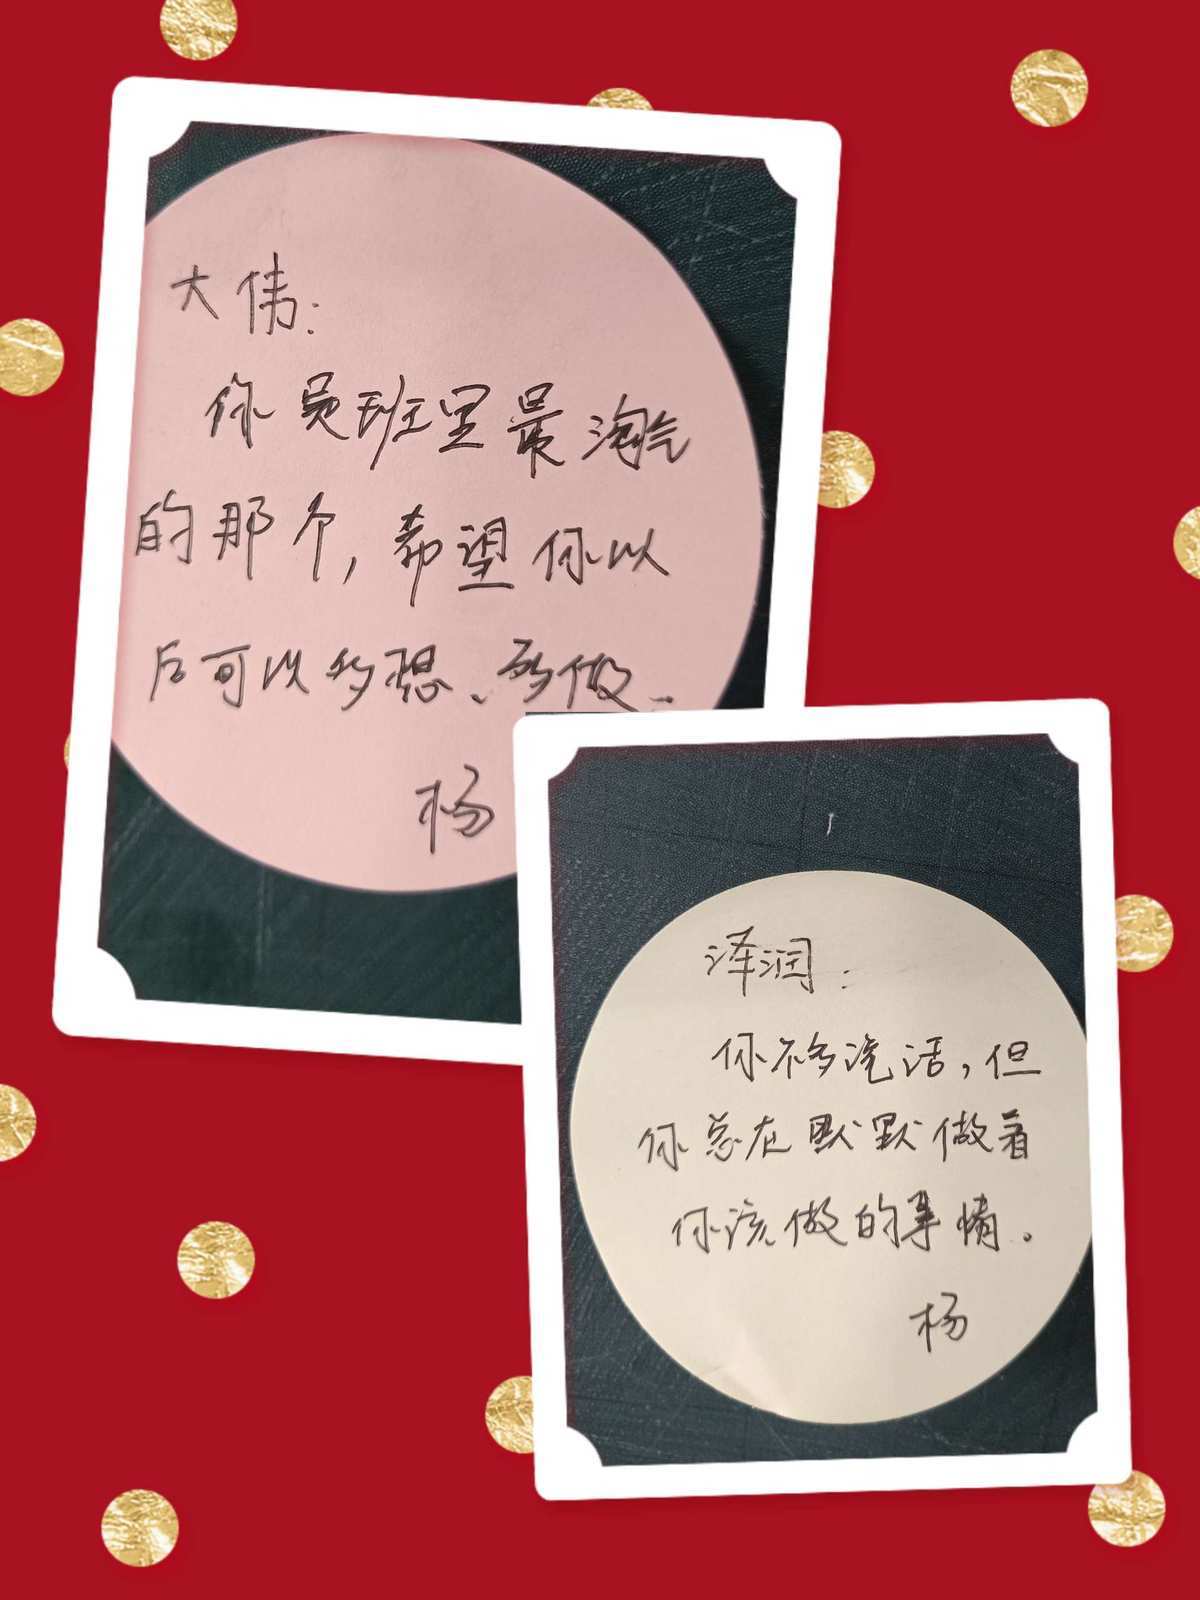 大伟：
你是班里最淘气
的那个，希望你以
后可以多想、多做。
杨
泽润：
你不多说话，但
你总在默默做着
你该做的事情。
杨